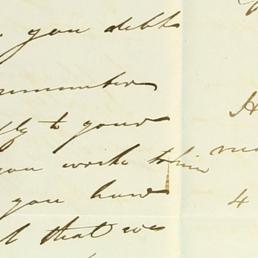 you debt
remember
ly to your
you write to him
you have
d that we
4